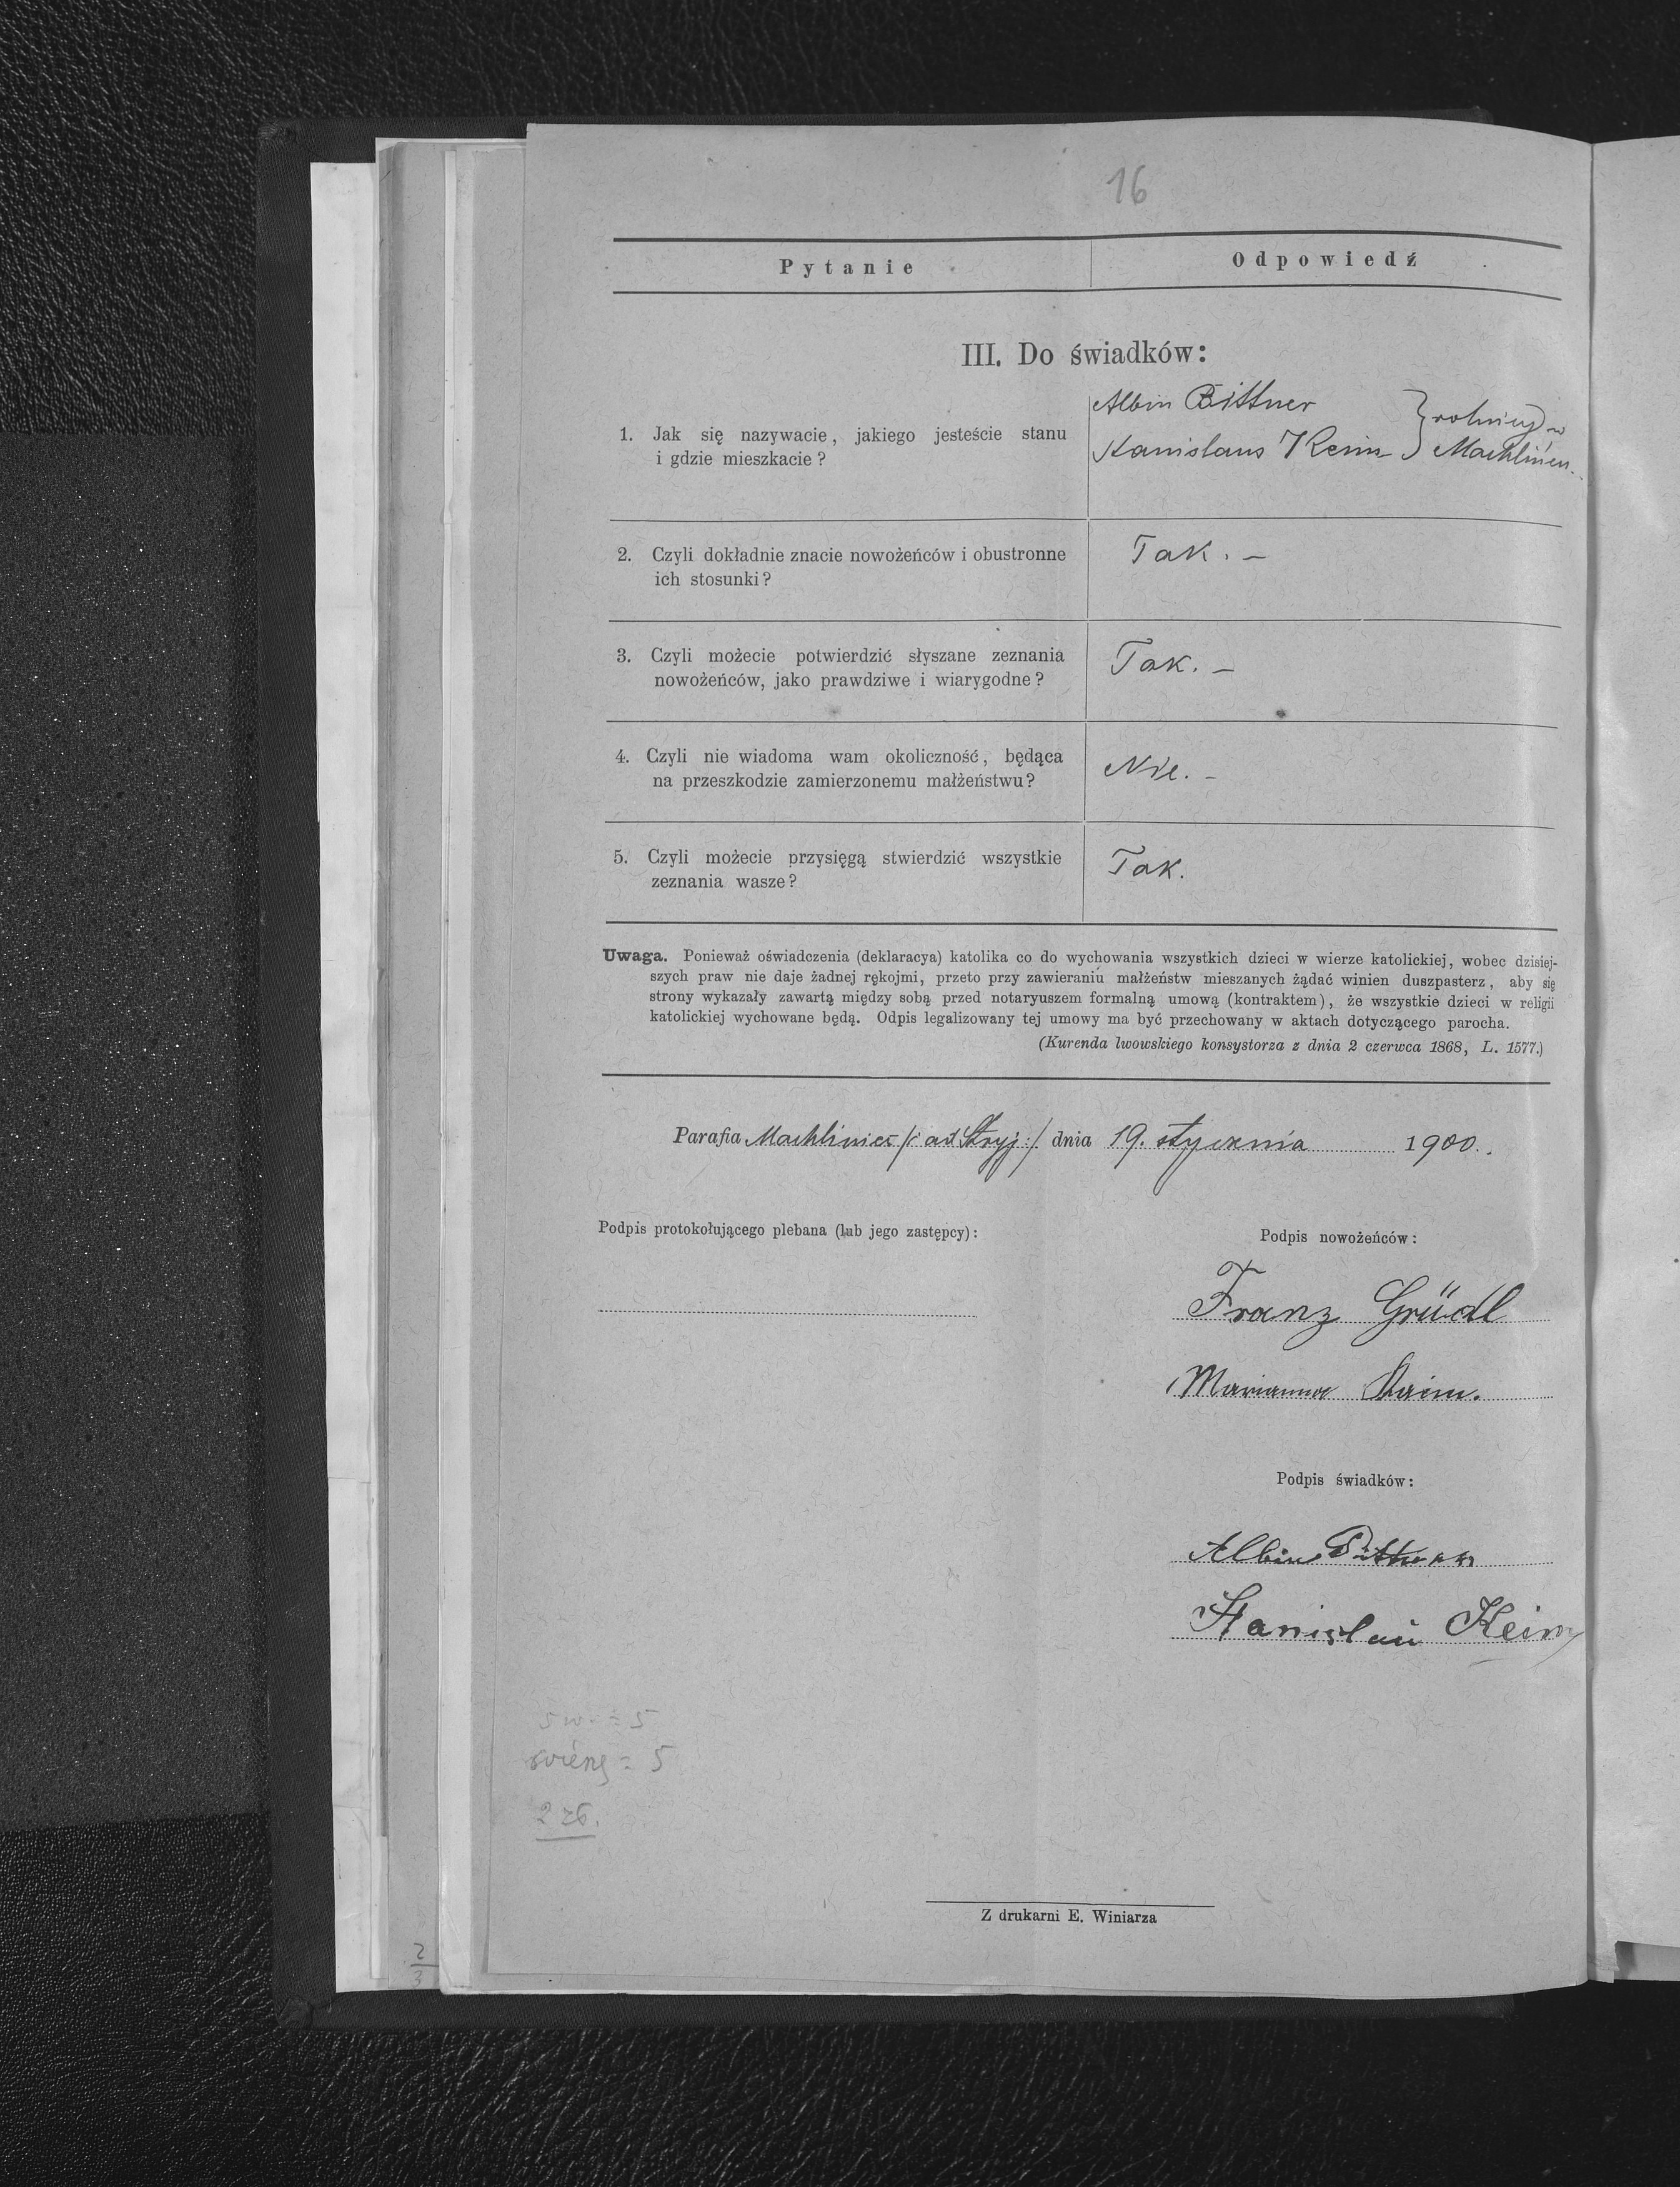 16
Pytanie Odpowiedź
III. Do świadków:
1. Jak się nazywacie, jakiego jesteście stanu
i gdzie mieszkacie?
Albin Bittner
Stanislaus Keim } rolnicy w
Machlińcu.
2. Czyli dokładnie znacie nowożeńców i obustronne
ich stosunki?
Tak. –
3. Czyli możecie potwierdzić słyszane zeznania
nowożeńców, jako prawdziwe i wiarygodne?
Tak. –
4. Czyli nie wiadoma wam okoliczność, będąca
na przeszkodzie zamierzonemu małżeństwu?
Nie. –
5. Czyli możecie przysięgą stwierdzić wszystkie
zeznania wasze?
Tak.
Uwaga. Ponieważ oświadczenia (deklaracya) katolika co do wychowania wszystkich dzieci w wierze katolickiej, wobec dzisiej-
szych praw nie daje żadnej rękojmi, przeto przy zawieraniu małżeństw mieszanych żądać winien duszpasterz, aby się
strony wykazały zawartą między sobą przed notaryuszem formalną umową (kontraktem), że wszystkie dzieci w religii
katolickiej wychowane będą. Odpis legalizowany tej umowy ma być przechowany w aktach dotyczącego parocha.
(Kurenda lwowskiego konsystorza z dnia 2 czerwca 1868, L. 1577.)
Parafia Machliniec /: ad Stryj :/ dnia 19. stycznia 1900.
Podpis protokołującego plebana (lub jego zastępcy):
Podpis nowożeńców:
Franz Grüdl
Marianna
Podpis świadków:
Albin Bittner
Stanislau Keim
5 w. = 5
= 5
2 zł.
Z drukarni E. Winiarza
2
3